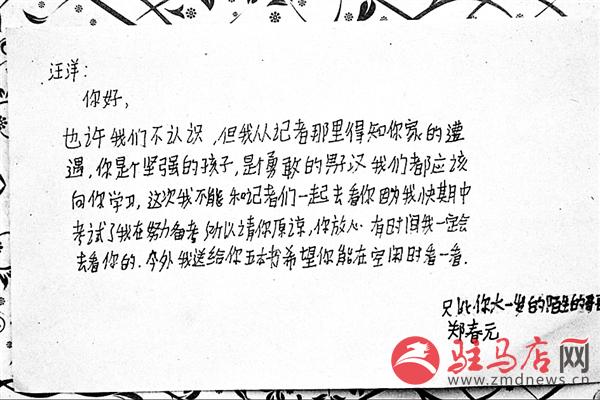 汪洋：
你好，
也许我们不认识，但我从记者那里得知你家的遭
遇，你是个坚强的孩子，是个勇敢的男子汉我们者都应该
向你学习，这次我不能和记者们一起去看你因为我快期中
考试了我在努力备考所以请你原谅，你放心 有时间我一定会
去看你的．今外我送给你五本书希望你能在空闲时看一看．
只比你大一岁的陌生的哥
郑春元
驻马店网
www.zmdnews.cn